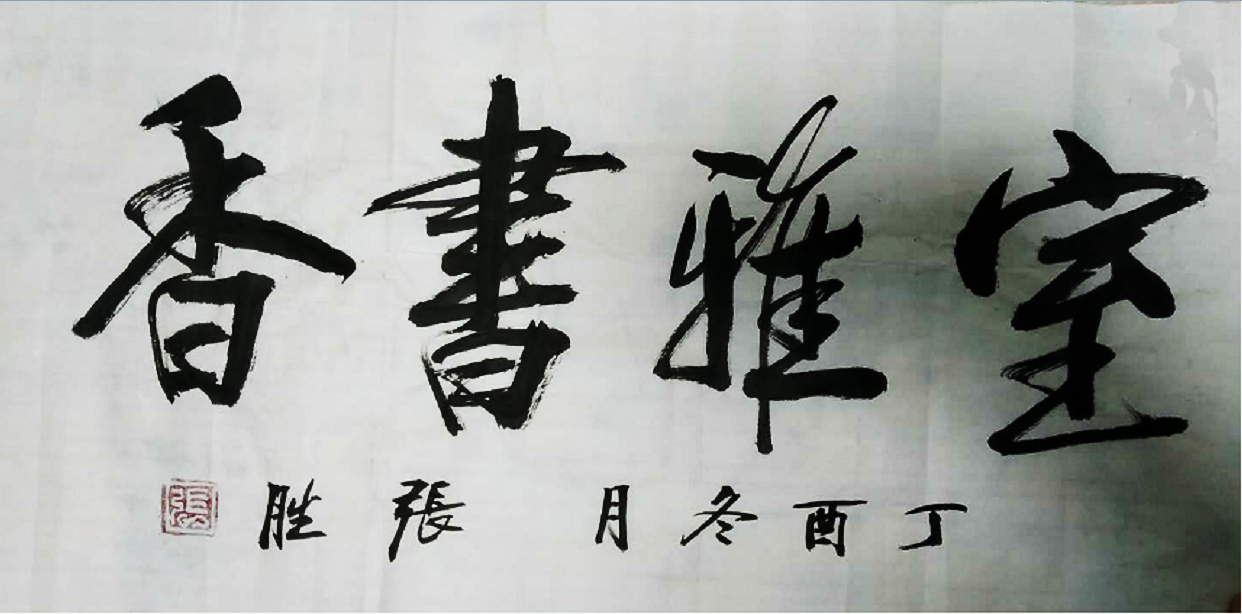 室雅書香
丁酉冬月 張胜
張